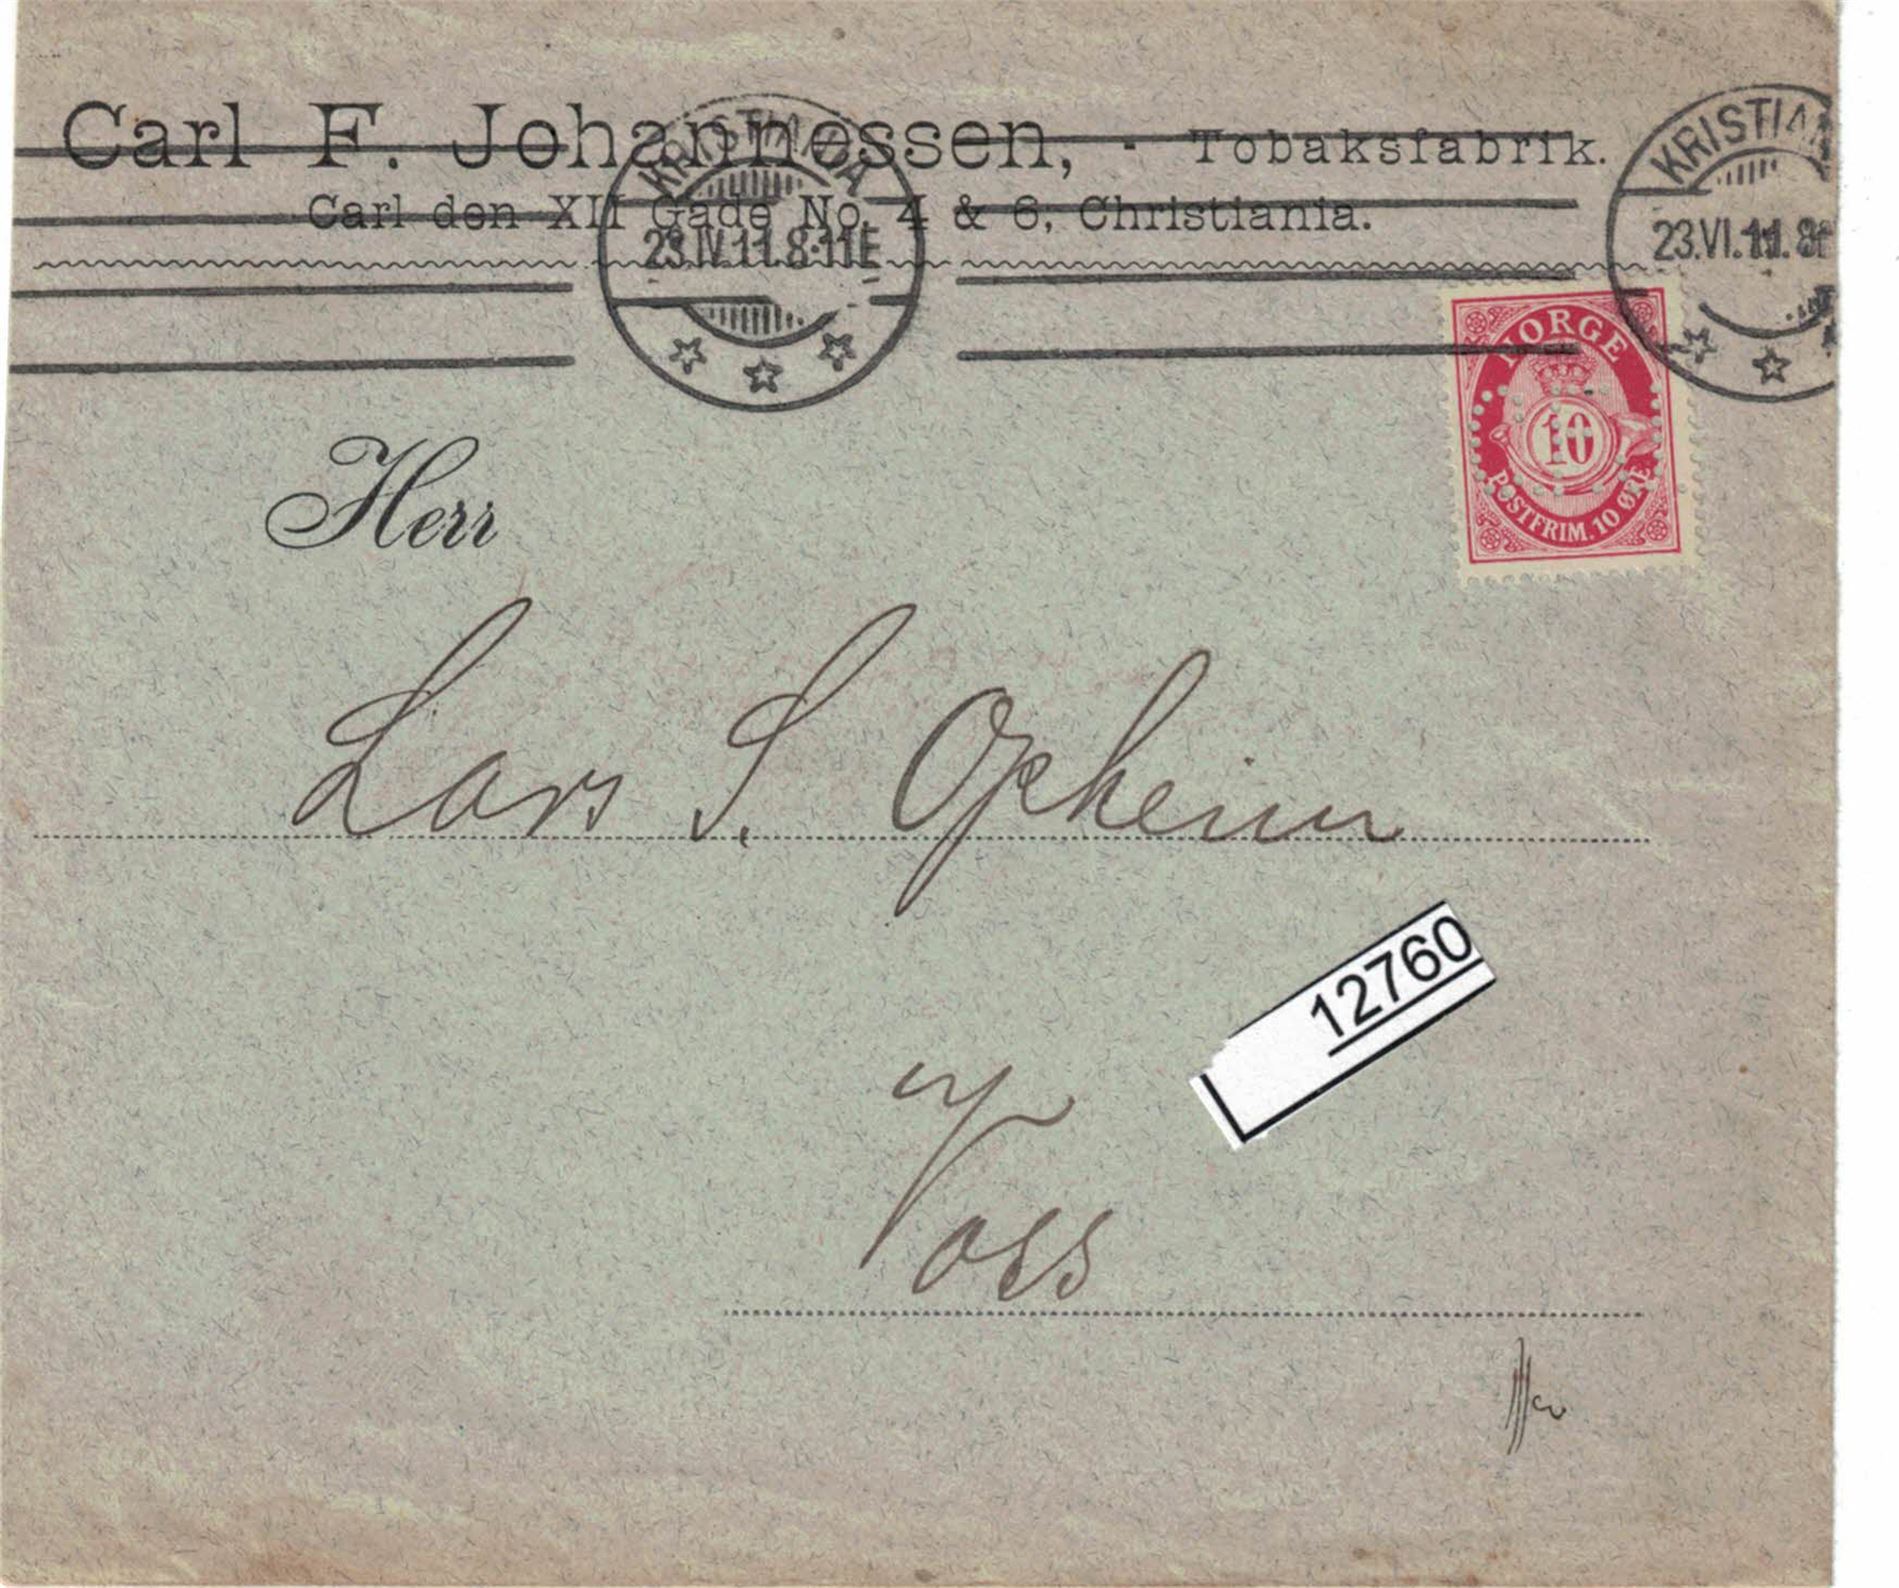 Carl F. Johannessen, - Tobaksfabrik.
Carl den XII Gade No. 4 & 6, Christiania.
KRISTIANIA
11.8-11E
KRISTIAN
23.VI.11.8
NORGE
10
POSTFRIM. 10 ØRE
Herr
Lars S. Opheim
12760
Voss